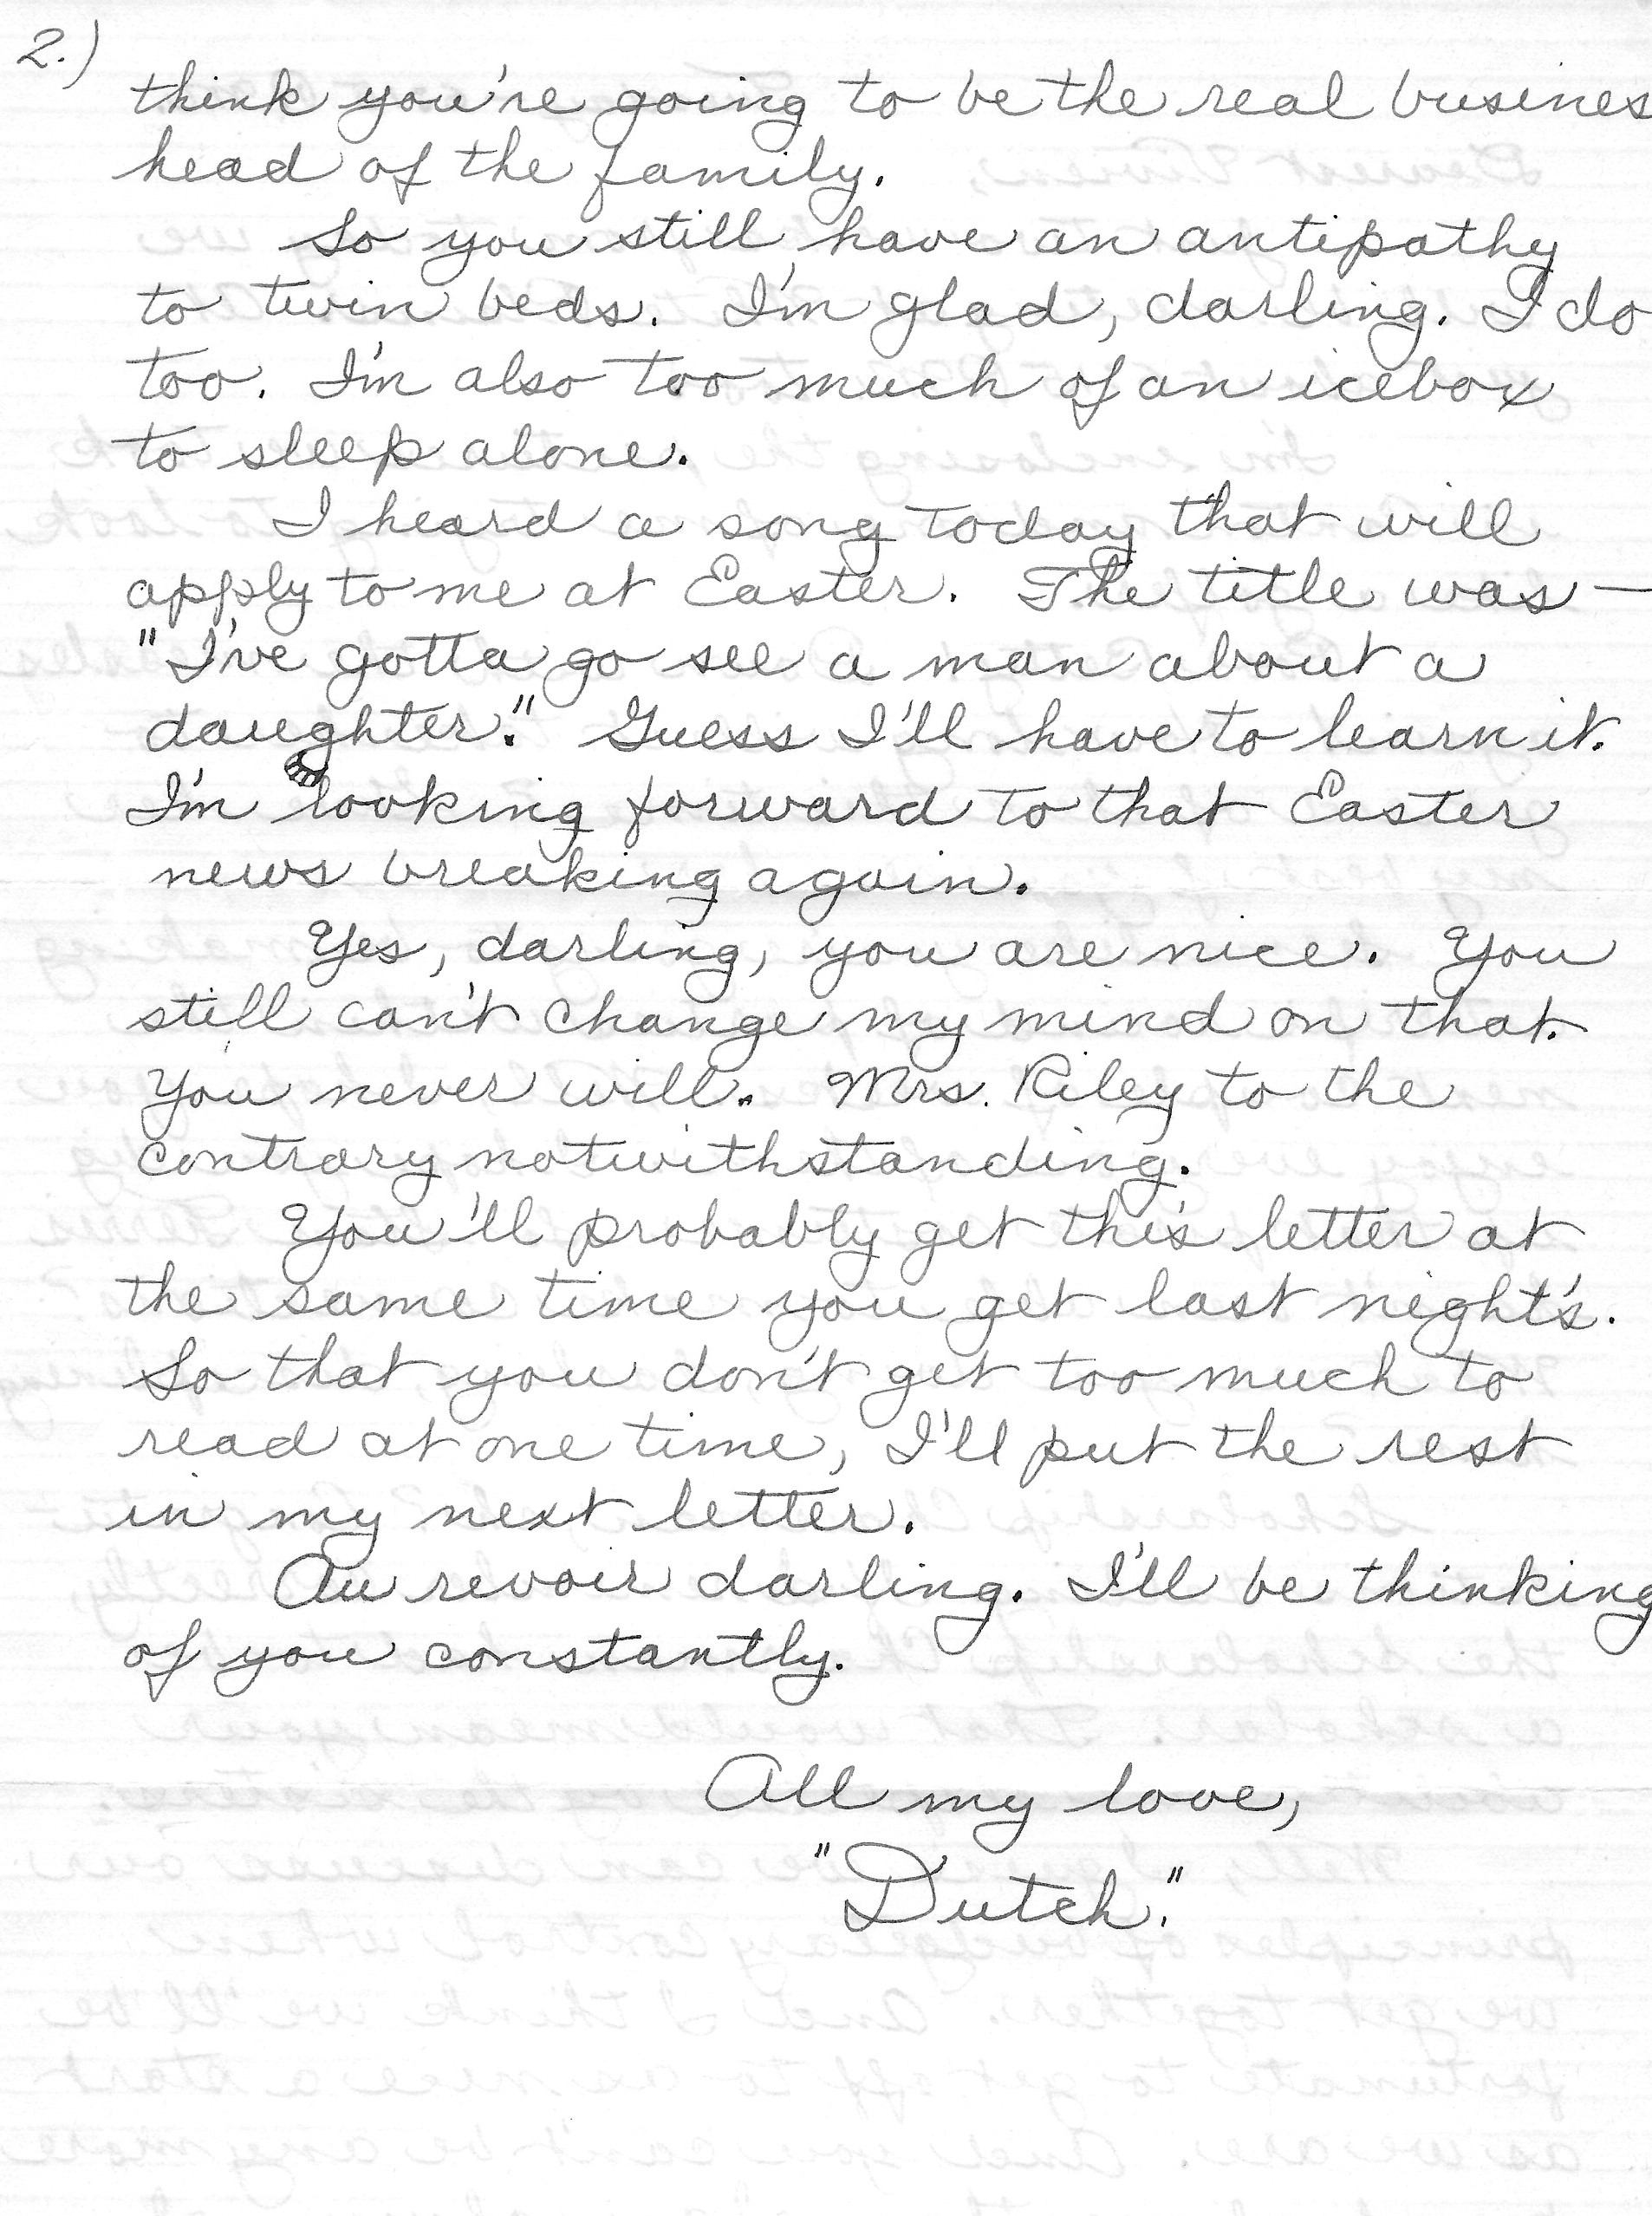 2.)
think you're going to be the real busines
head of the family.
So you still have an antipathy
to twin beds. I'm glad, darling. I do
too. I'm also too much of an icebox
to sleep alone.
I heard a song today that will
apply to me at Easter. The title was —
"I've gotta go see a man about a
daughter." Guess I'll have to learn it.
I'm looking forward to that Easter
news breaking again.
Yes, darling, you are nice. You
still can't change my mind on that.
You never will. Mrs. Riley to the
contrary notwithstanding.
You'll probably get this letter at
the same time you get last night's.
So that you don't get too much to
read at one time, I'll put the rest
in my next letter.
Au revoir darling. I'll be thinking
of you constantly.
All my love,
"Dutch."